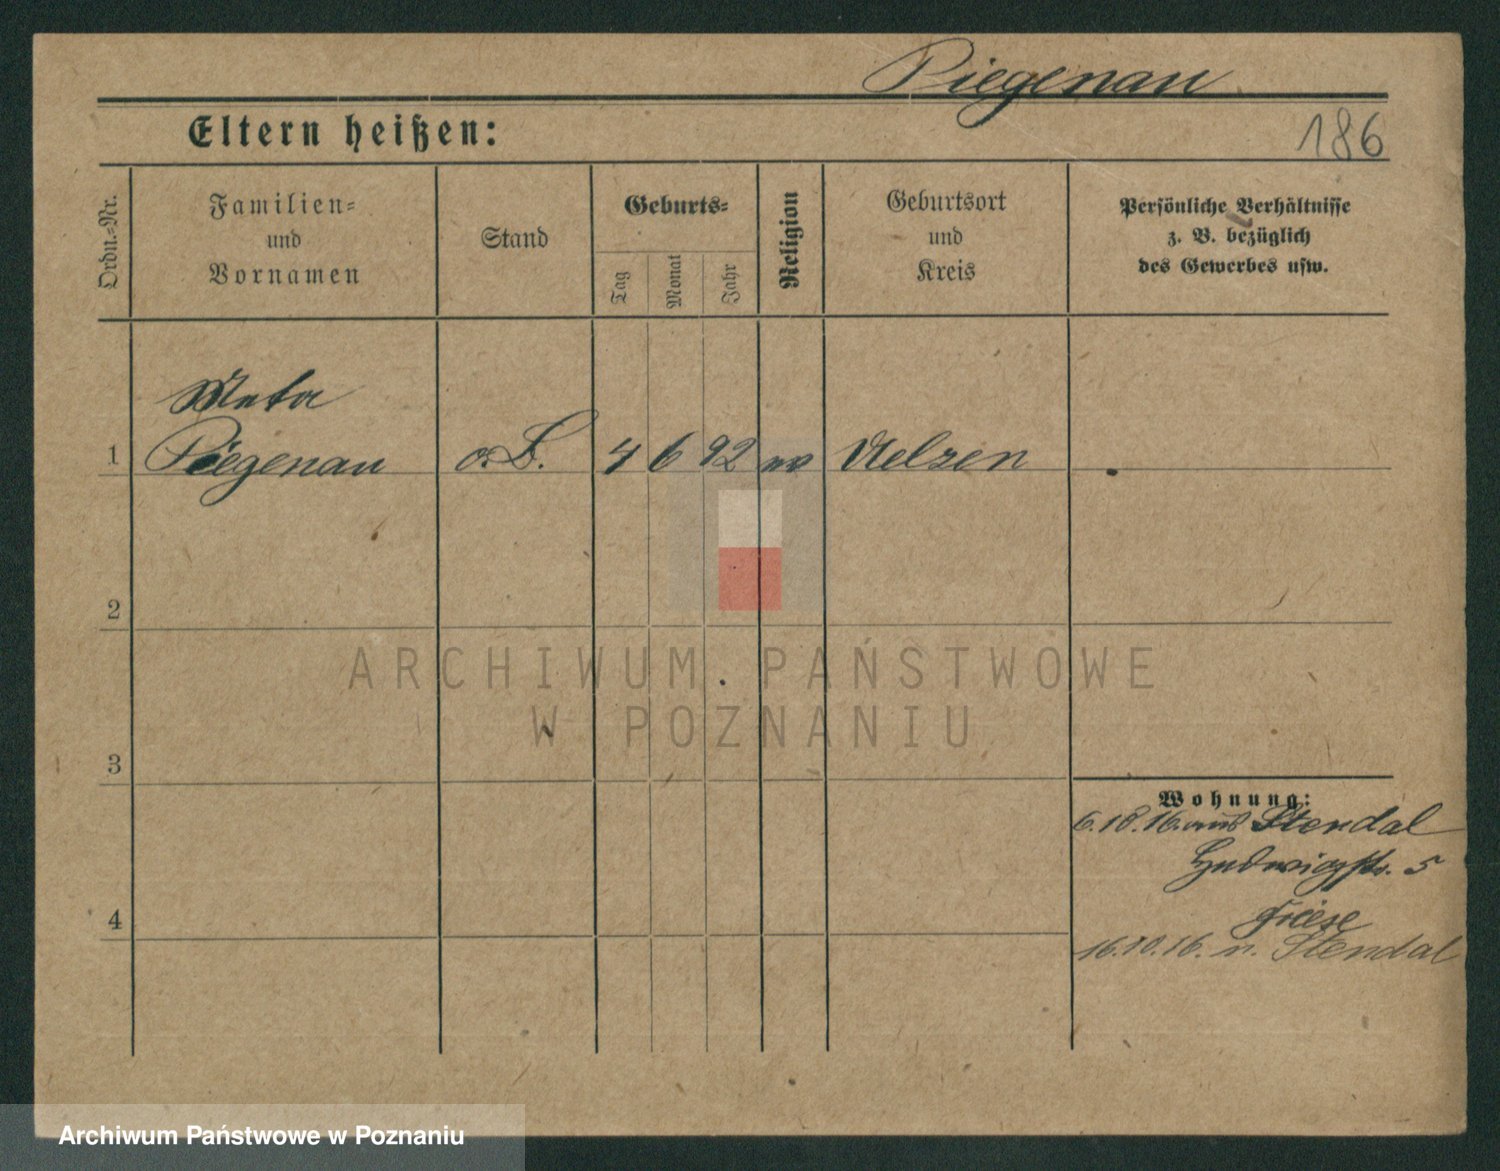 Piegenau
Eltern heißen:
186
Ordn.-Nr.
Familien-
und
Vornamen
Stand
Geburts-
Tag
Monat
Jahr
Religion
Geburtsort
und
Kreis
Persönliche Verhältnisse
z. B. bezüglich
des Gewerbes usw.
Meta
1 Piegenau o. B. 4 6 92 ev Uelzen
2
ARCHIWUM PAŃSTWOWE
W POZNANIU
3
Wohnung:
6.10.16. aus Stendal
5
Friese
4
16.10.16. n. Stendal
Archiwum Państwowe w Poznaniu